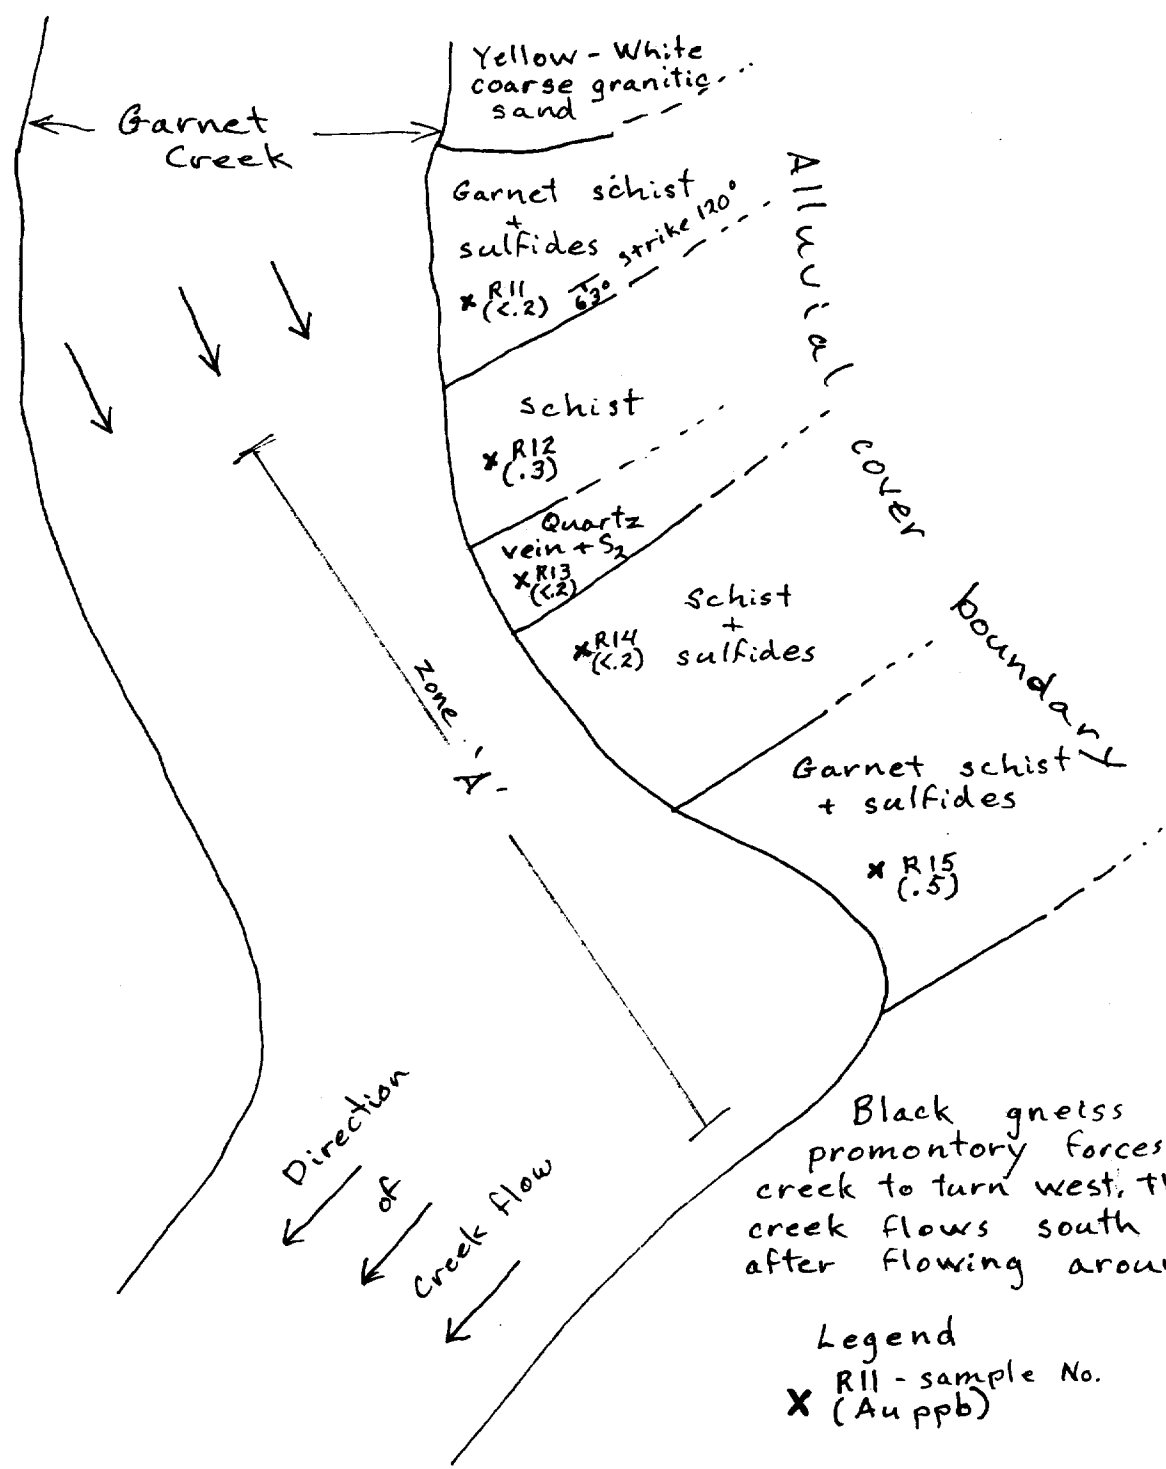 Yellow - White
coarse granitic
sand
Garnet
Creek
Garnet schist
+
sulfides
strike 120°
63°
R11
(<.2)
Alluvial cover boundary
schist
R12
(.3)
Quartz
vein + S2
R13
(<.2)
Schist
+
sulfides
R14
(<.2)
Zone 'A'
Garnet schist
+ sulfides
R15
(.5)
Direction
of
Creek flow
Black gneiss
promontory forces
creek to turn west,
creek flows south
after flowing
Legend
X R11 - sample No.
(Au ppb)